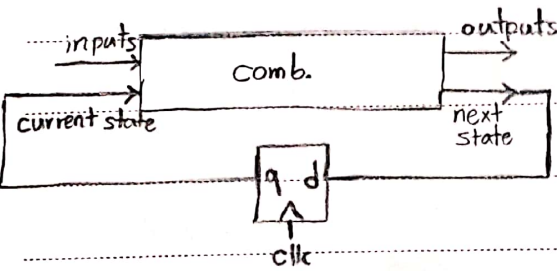 inputs
outputs
comb.
current state
next
state
q d
clk